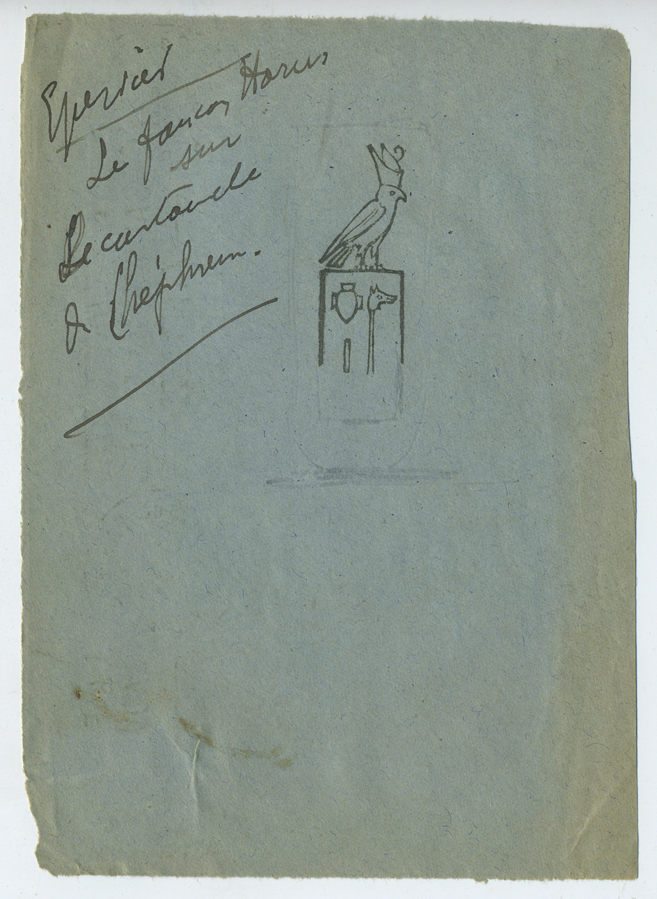 Epervier
Le faucon Horus
sur
Le cartouche
de Chéphren.